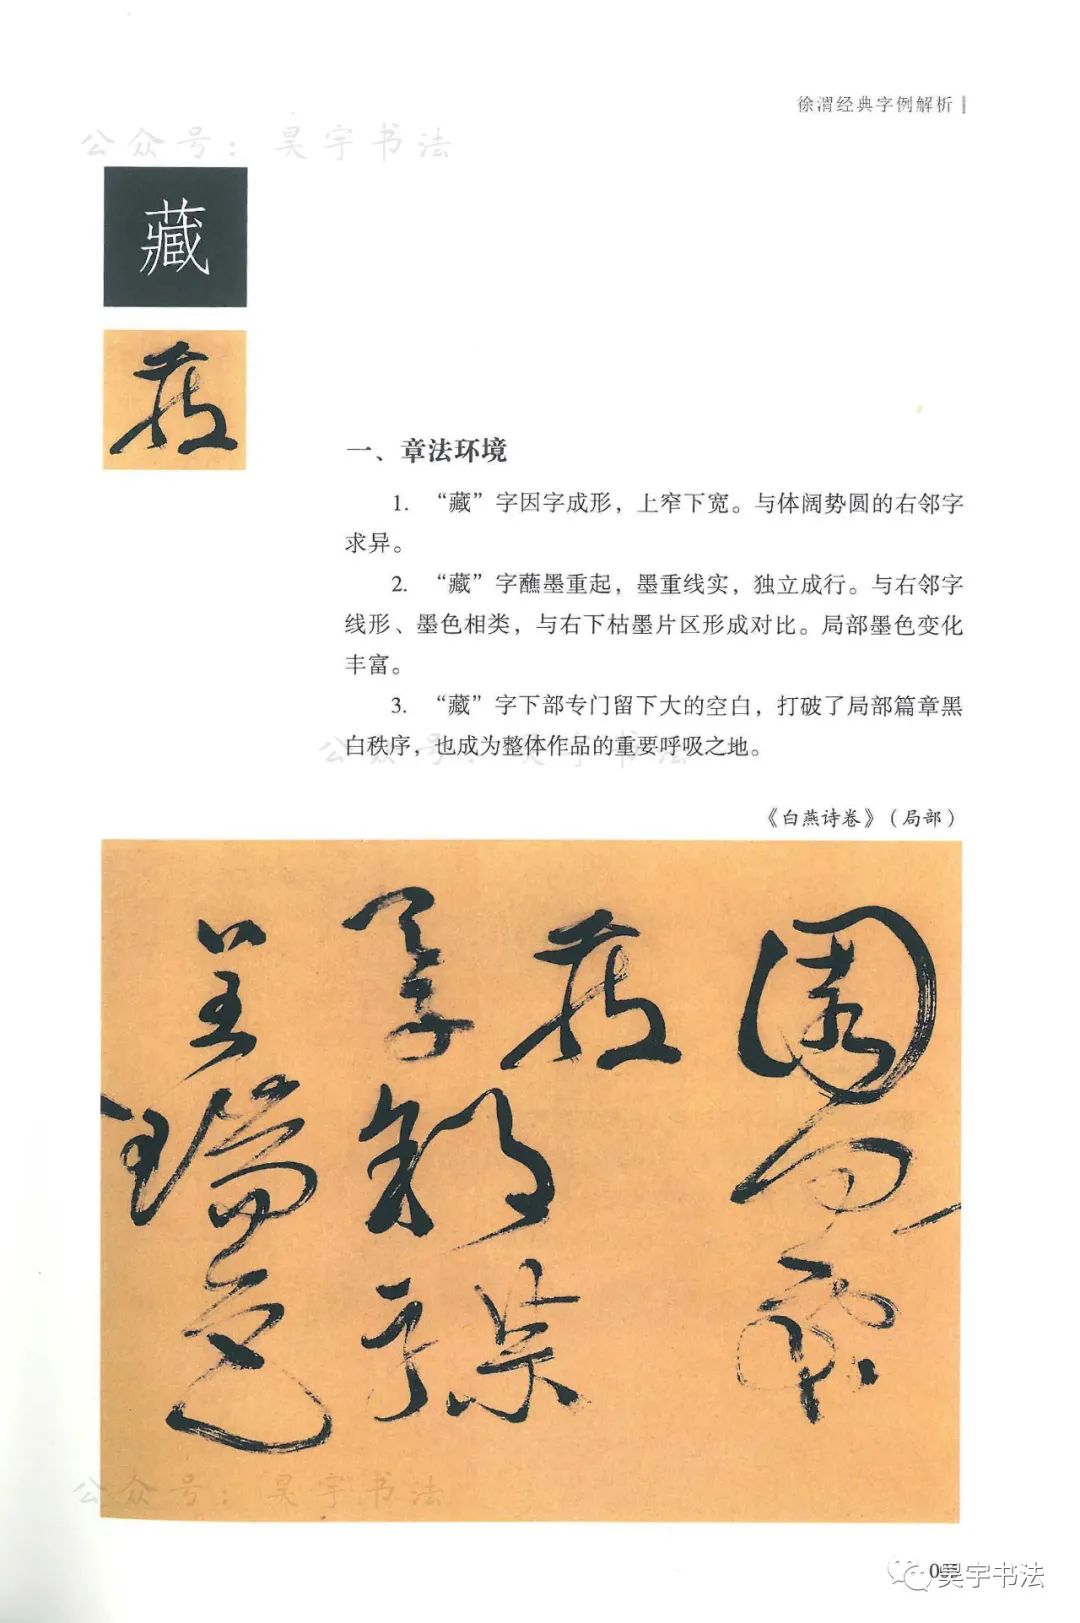 徐渭经典字例解析
公众号：昊宇书法
藏
藏
一、章法环境
1. “藏”字因字成形，上窄下宽。与体阔势圆的右邻字
求异。
2. “藏”字蘸墨重起，墨重线实，独立成行。与右邻字
线形、墨色相类，与右下枯墨片区形成对比。局部墨色变化
丰富。
3. “藏”字下部专门留下大的空白，打破了局部篇章黑
白秩序，也成为整体作品的重要呼吸之地。
公众号：昊宇书法
《白燕诗卷》（局部）
藏
呈瑞
公众号：昊宇书法
昊宇书法